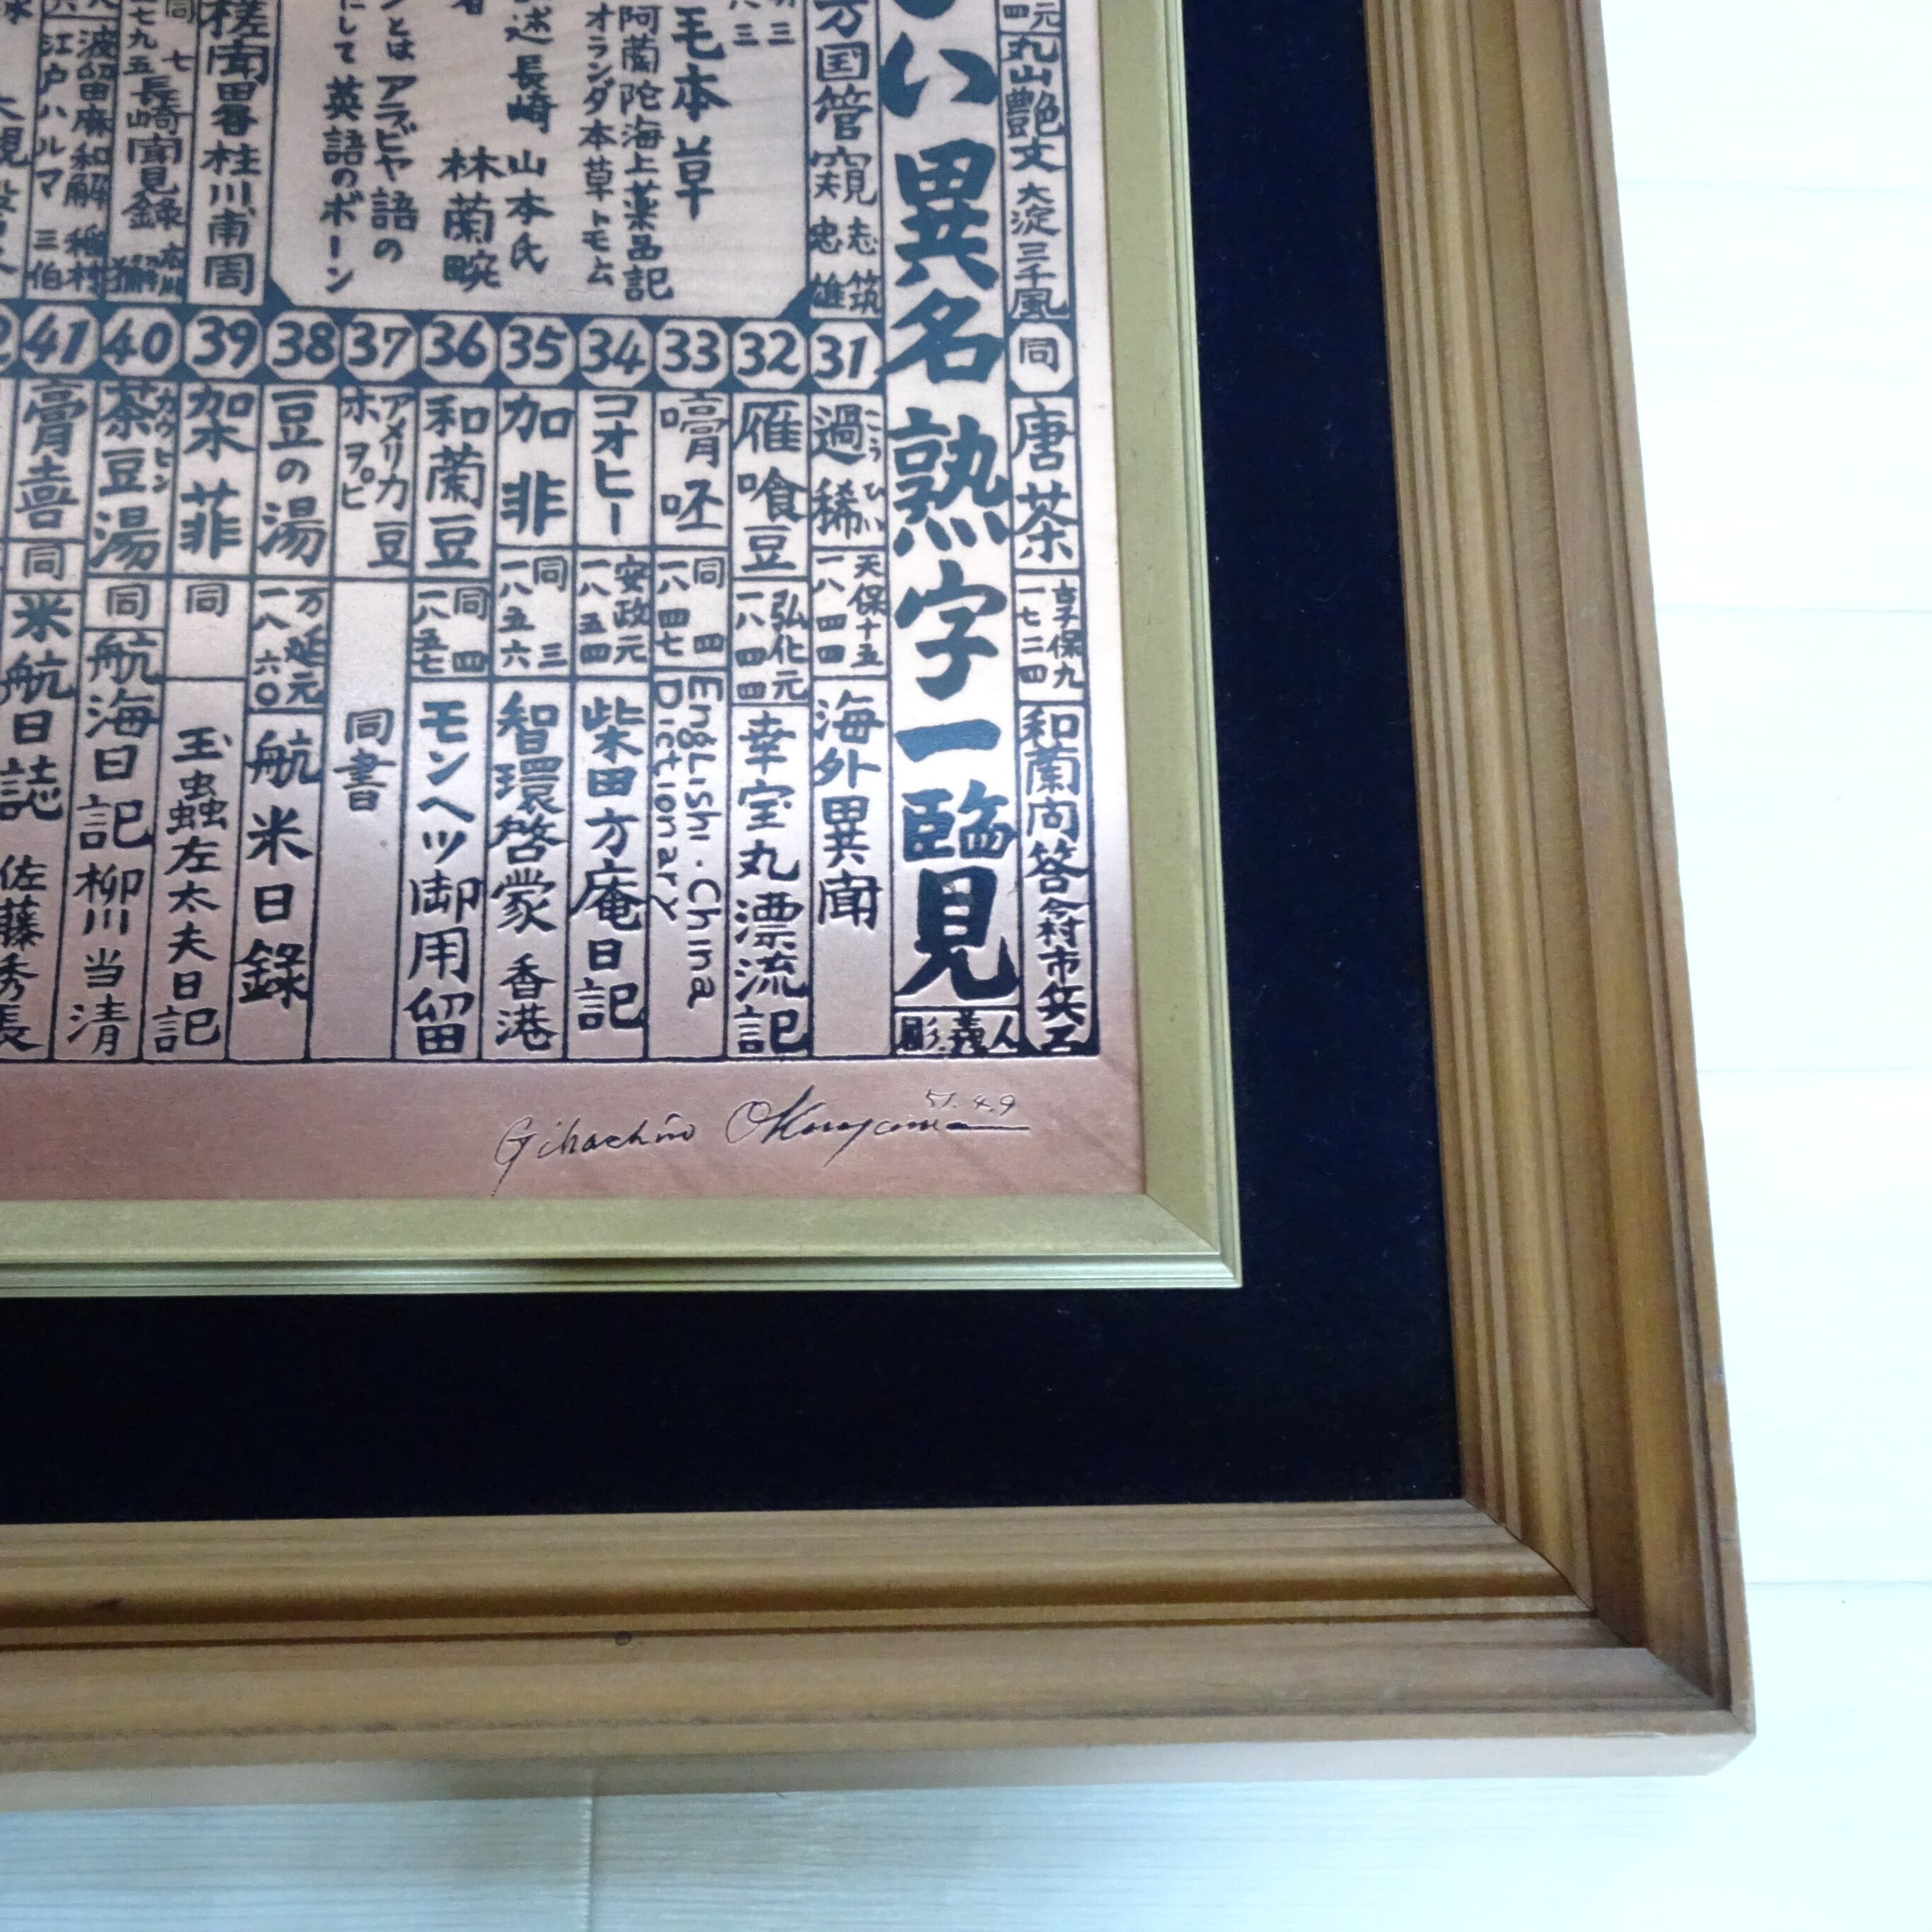 元
四
丸山艶文
大淀三千風
同
唐茶
享保九
一七二四
和蘭問答
今村市兵エ
い異名熟字一臨見
人義彫
万国管窺
志筑
忠雄
毛本草
阿蘭陀海上薬品記
オランダ本草トモム
述長崎
山本氏
林蘭畹
とは アラビヤ語の
にして 英語のボーン
桂川甫周
長崎聞見録
波留麻和解
稲村
江戸ハルマ
三伯
31
過稀
こうひい
天保十五
一八四四
海外異聞
32
雁喰豆
弘化元
一八四四
幸宝丸漂流記
33
膏
同四
一八四七
English・China
Dictionary
34
コオヒー
安政元
一八五四
柴田方庵日記
35
加非
同三
一八五六
智環啓蒙 香港
36
和蘭豆
同四
一八五七
モンヘツ御用留
37
アメリカ豆
ホヲピ
同書
38
豆の湯
万延元
一八六〇
航米日録
39
架菲
同
玉蟲左太夫日記
40
茶豆湯
カウヒン
同
航海日記
柳川当清
41
膏喜
同
米航日誌
佐藤秀長
Gihachiro Okuyama
51.4.9